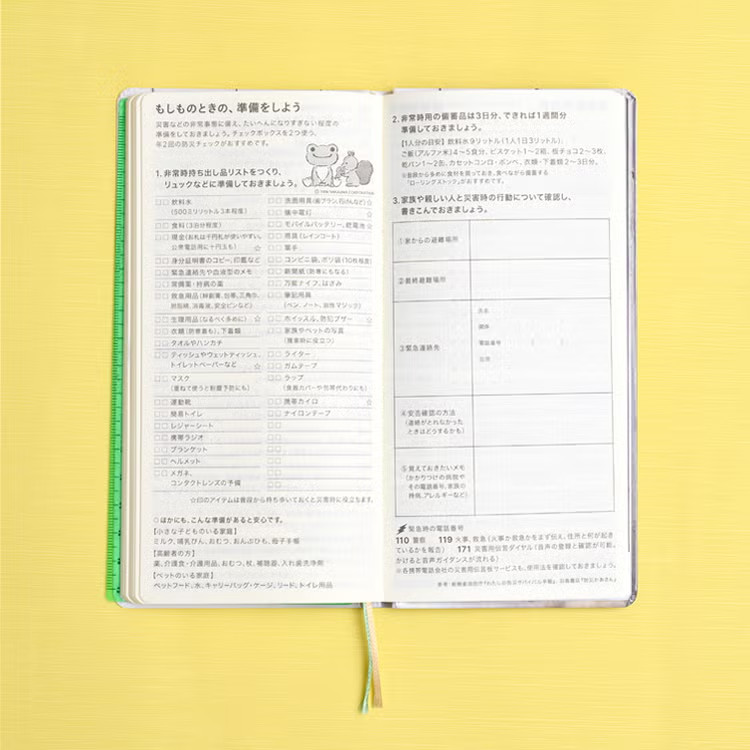 もしものときの、準備をしよう
災害などの非常事態に備え、たいへんになりすぎない程度の
準備をしておきましょう。チェックボックスを2つ使う、
年2回の防災チェックがおすすめです。
1. 非常時持ち出し品リストをつくり、
リュックなどに準備しておきましょう。
飲料水
(500ミリリットル3本程度)
食料(3日分程度)
現金(お札は千円札が使いやすい。
公衆電話用に十円玉も) ☆
身分証明書のコピー、印鑑など
緊急連絡先や血液型のメモ
常備薬・持病の薬
救急用品(絆創膏、包帯、三角巾、
体温計、消毒液、安全ピンなど)
生理用品(なるべく多めに) ☆
衣類(防寒着も)、下着類
タオルやハンカチ
ティッシュやウェットティッシュ、
トイレットペーパーなど ☆
マスク
(重ねて使うと粉塵予防にも)
運動靴
簡易トイレ
レジャーシート
携帯ラジオ
ブランケット
ヘルメット
メガネ、
コンタクトレンズの予備
洗面用具(歯ブラシ、石けんなど) ☆
懐中電灯 ☆
モバイルバッテリー、乾電池 ☆
雨具(レインコート)
軍手
コンビニ袋、ポリ袋(10枚程度)
新聞紙(防寒にもなる)
万能ナイフ、はさみ
筆記用具
(ペン、ノート、油性マジック)
ホイッスル、防犯ブザー ☆
家族やペットの写真
(捜索時に役立つ)
ライター
ガムテープ
ラップ
(食器カバーや包帯代わりにも)
携帯カイロ ☆
ナイロンテープ
☆印のアイテムは普段から持ち歩いておくと災害時に役立ちます。
○ほかにも、こんな準備があると安心です。
【小さな子どものいる家庭】
ミルク、哺乳びん、おむつ、おんぶひも、母子手帳
【高齢者の方】
薬、介護食・介護用品、おむつ、杖、補聴器、入れ歯洗浄剤
【ペットのいる家庭】
ペットフード、水、キャリーバッグ・ケージ、リード、トイレ用品
2. 非常時用の備蓄品は3日分、できれば1週間分
準備しておきましょう。
【1人分の目安】 飲料水9リットル(1人1日3リットル)、
ご飯(アルファ米)4〜5食分、ビスケット1〜2箱、板チョコ2〜3枚、
乾パン1〜2缶、カセットコンロ・ボンベ、衣類・下着類2〜3日分。
※普段から多めに食材を買っておき、食べながら備蓄する
"ローリングストック"がおすすめです。
3. 家族や親しい人と災害時の行動について確認し、
書きこんでおきましょう。
①家からの避難場所
②最終避難場所
③緊急連絡先
氏名
関係
電話番号
住所
④安否確認の方法
(連絡がとれなかった
ときはどうするかも)
⑤覚えておきたいメモ
(かかりつけの病院や
その電話番号、家族の
持病、アレルギーなど)
緊急時の電話番号
110 警察 119 火事、救急(火事か救急かをまず伝え、住所と何が起き
ているかを報告) 171 災害用伝言ダイヤル(音声の登録と確認が可能。
かけると音声ガイダンスが流れる)
※各携帯電話会社の災害用伝言板サービスも、使用法を確認しておきましょう。